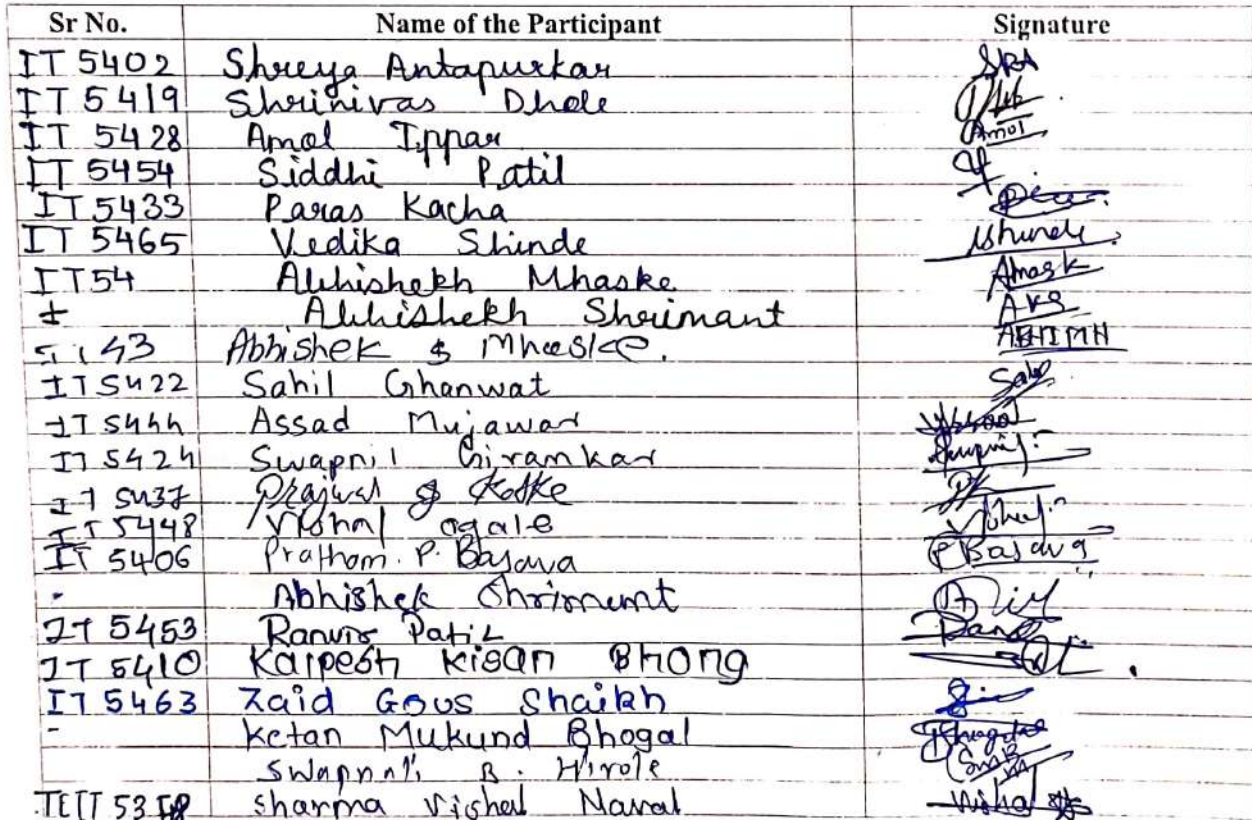 Sr No. Name of the Participant Signature
IT 5402 Shreya Antapurkar SRA
IT 5419 Shrinivas Dhole
IT 5428 Amol Ippar Amol
IT 5454 Siddhi Patil
IT 5433 Paras Kacha
IT 5465 Vedika Shinde
IT54 Abhishekh Mhaske
Abhishekh Shrimant AKS
43 Abhishek S Mhaske. ABHIMH
IT5422 Sahil Ghanwat
IT5444 Assad Mujawar
IT 5424 Swapnil Giramkar
IT 5437 Prajwal Kotke PK
IT 5448 Vishal ogale
IT 5406 Pratham. P. Basava P Basava
- Abhishek Shrimant
IT 5453 Ranvir Patil
IT 5410 Kalpesh Kisan Bhong
IT 5463 Zaid Gous Shaikh
- Ketan Mukund Bhogal
Swapnali B. Hirole
TEIT 53 Sharma Vishal Naval Vishal